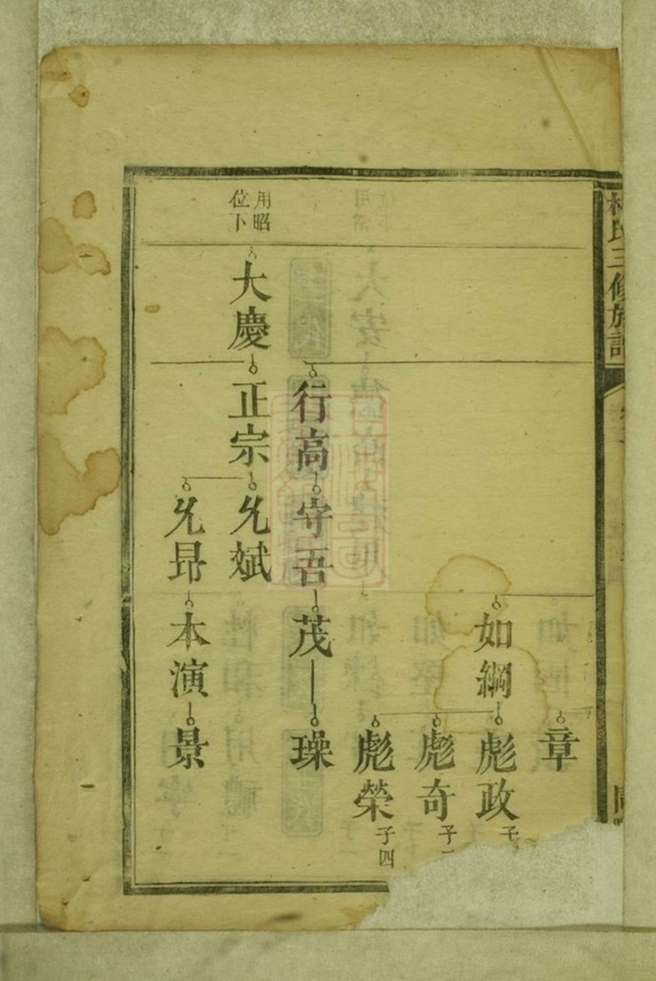 氏三修族譜
章
如綱
彪政子
彪奇子
彪榮子四
行高
守吾
茂
璪
用昭
位下
大慶
正宗
允斌
允昂
本演
景